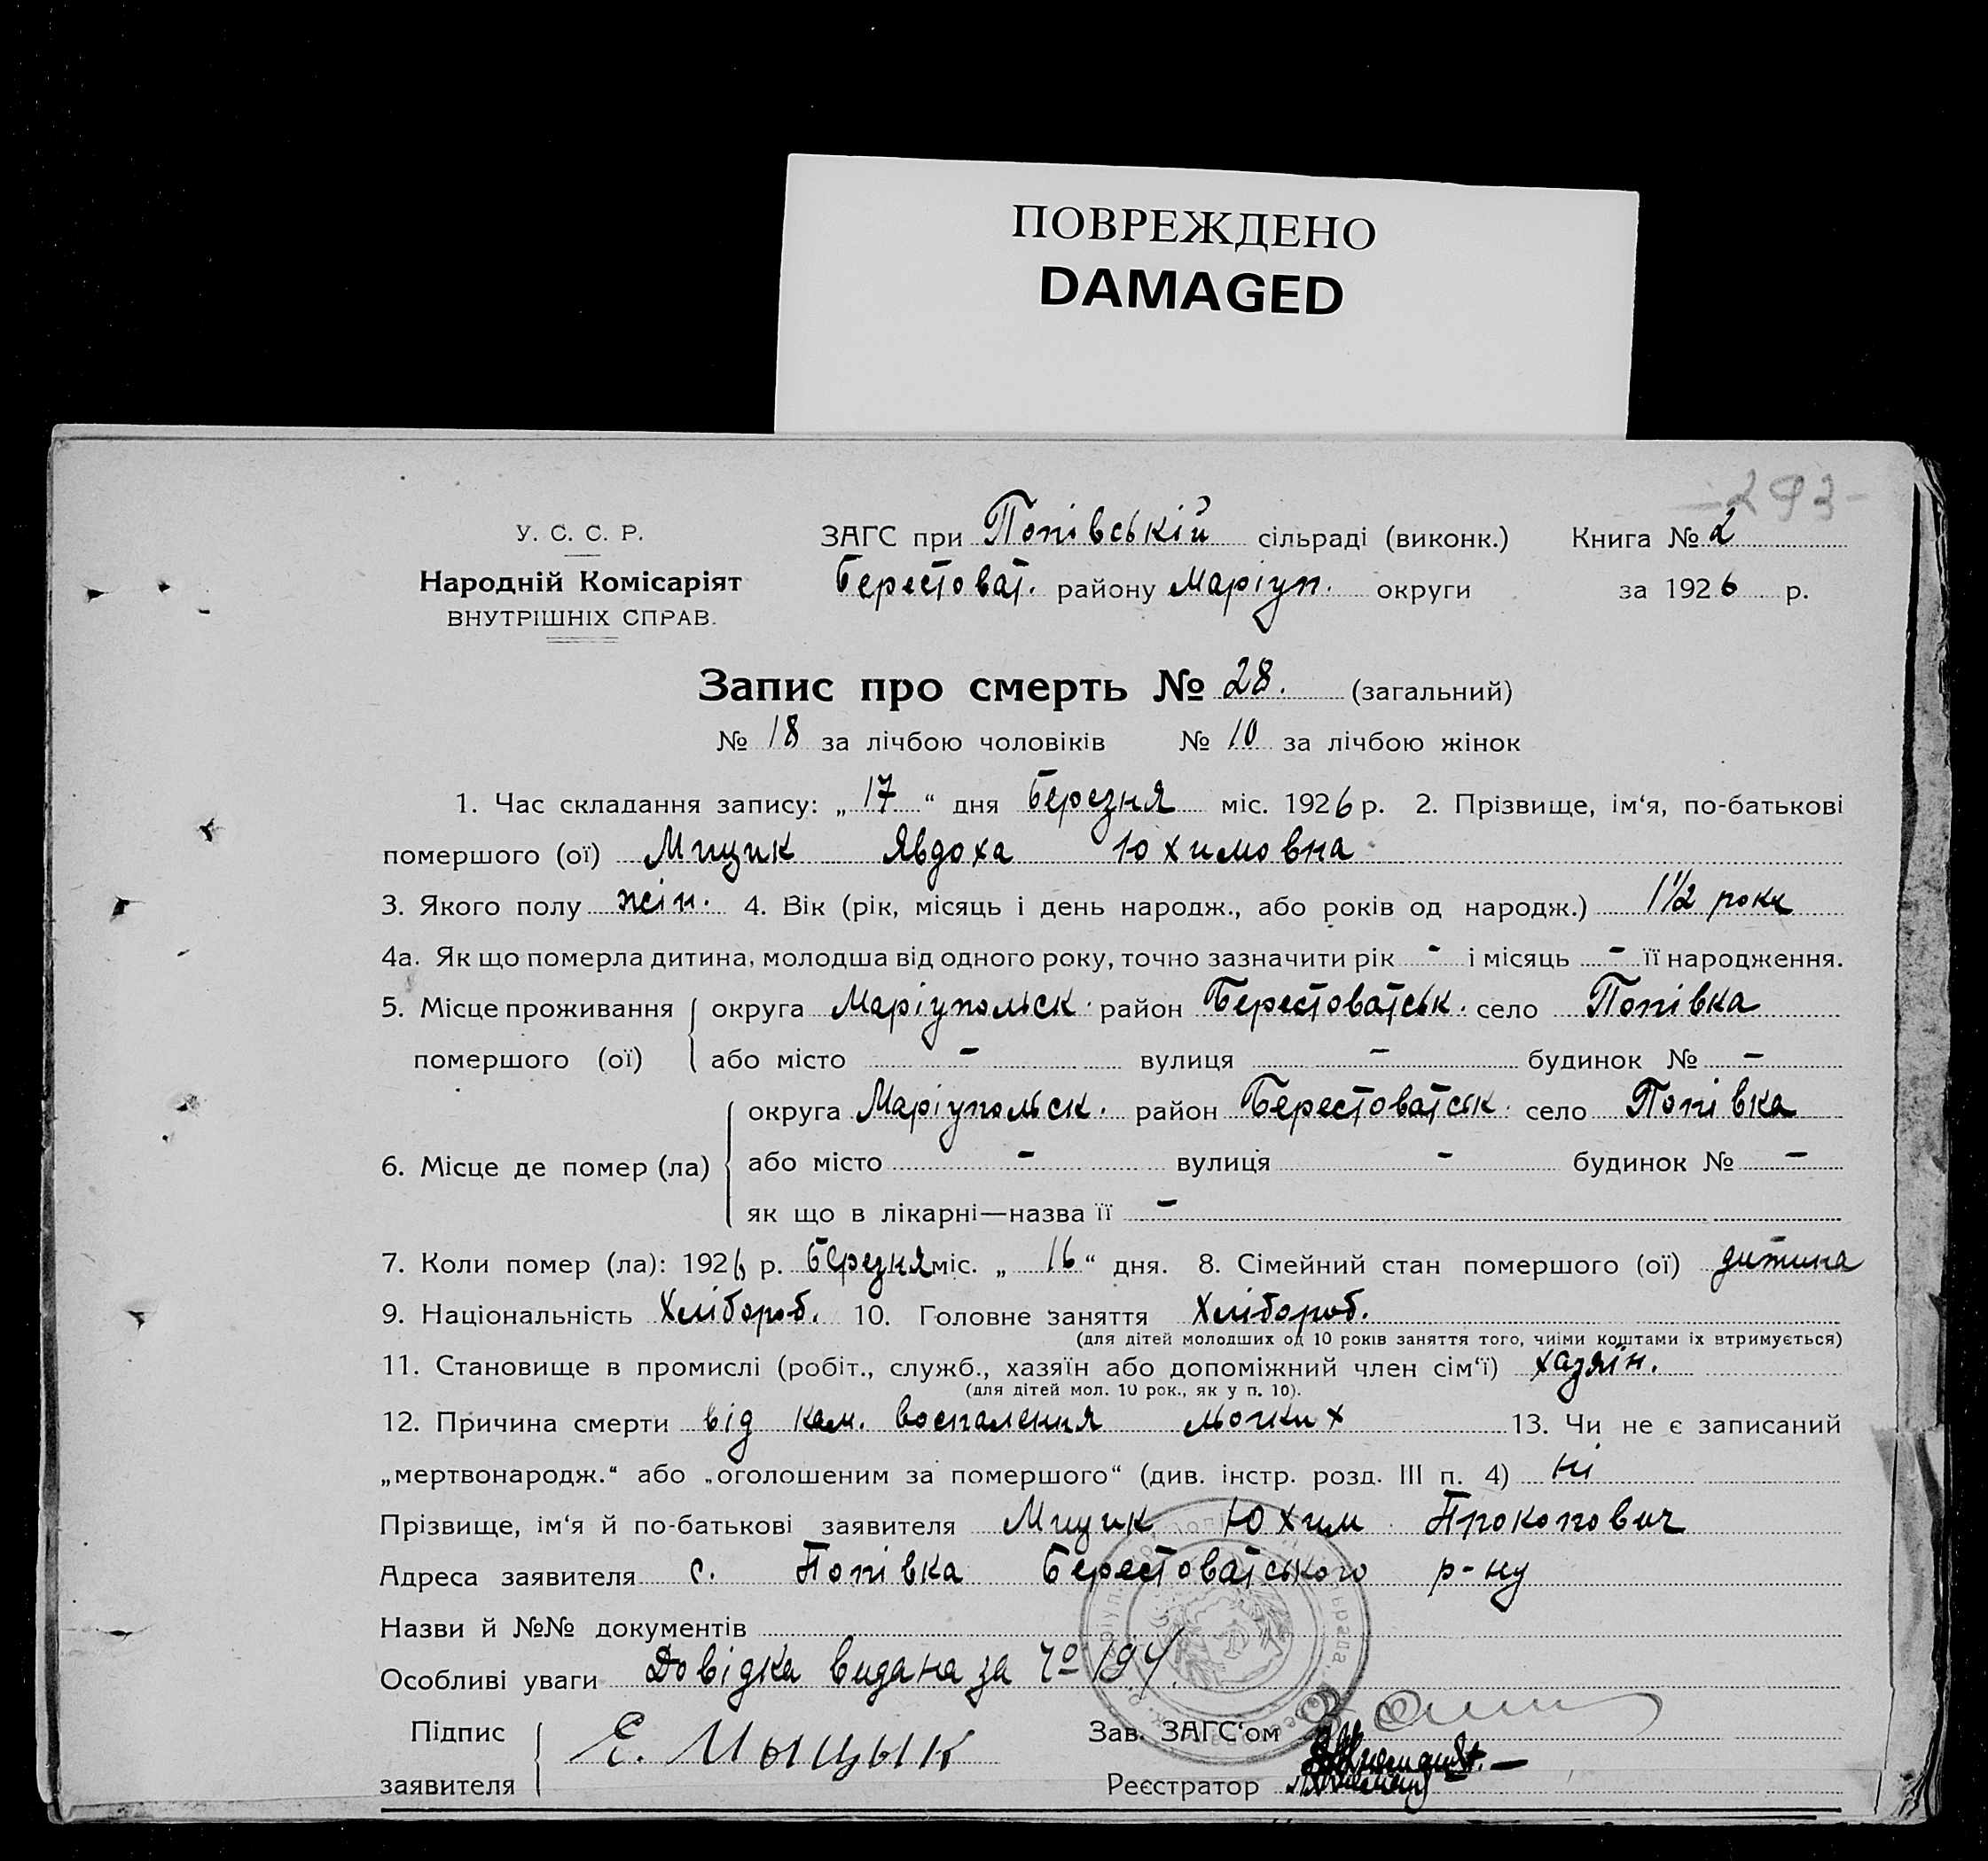 ПОВРЕЖДЕНО
DAMAGED
-293-
У. С. С. Р. ЗАГС при Попівській сільраді (виконк.) Книга № 2
Народній Комісаріят Берестоват. району Маріуп. округи за 1926 р.
ВНУТРІШНІХ СПРАВ.
Запис про смерть № 28. (загальний)
№ 18 за лічбою чоловіків № 10 за лічбою жінок
1. Час складання запису: „17“ дня Березня міс. 1926 р. 2. Прізвище, ім‘я, по-батькові
помершого (ої) Мищик Явдоха Юхимовна
3. Якого полу жін. 4. Вік (рік, місяць і день народж., або років од народж.) 1 1/2 роки
4а. Як що померла дитина, молодша від одного року, точно зазначити рік - і місяць - її народження.
5. Місце проживання округа Маріупольск. район Берестоватськ. село Попівка
помершого (ої) або місто - вулиця - будинок № -
округа Маріупольск. район Берестоватськ. село Попівка
6. Місце де помер (ла) або місто - вулиця - будинок № -
як що в лікарні—назва її -
7. Коли помер (ла): 1926 р. Березня міс. „16“ дня. 8. Сімейний стан помершого (ої) дитина
9. Національність Хлібороб. 10. Головне заняття Хлібороб.
(для дітей молодших од 10 років заняття того, чиїми коштами їх втримується)
11. Становище в промислі (робіт., служб., хазяїн або допоміжний член сім‘ї) хазяїн.
(для дітей мол. 10 рок., як у п. 10).
12. Причина смерти від воспаления 13. Чи не є записаний
„мертвонародж.“ або „оголошеним за помершого“ (див. інстр. розд. III п. 4) ні
Прізвище, ім‘я й по-батькові заявителя Мищик Юхим Прокопович
Адреса заявителя с. Попівка Берестоватського р-ну
Назви й №№ документів
Особливі уваги Довідка видана за № 194.
Підпис Е. Мыцык Зав. ЗАГС‘ом
заявителя Реєстратор